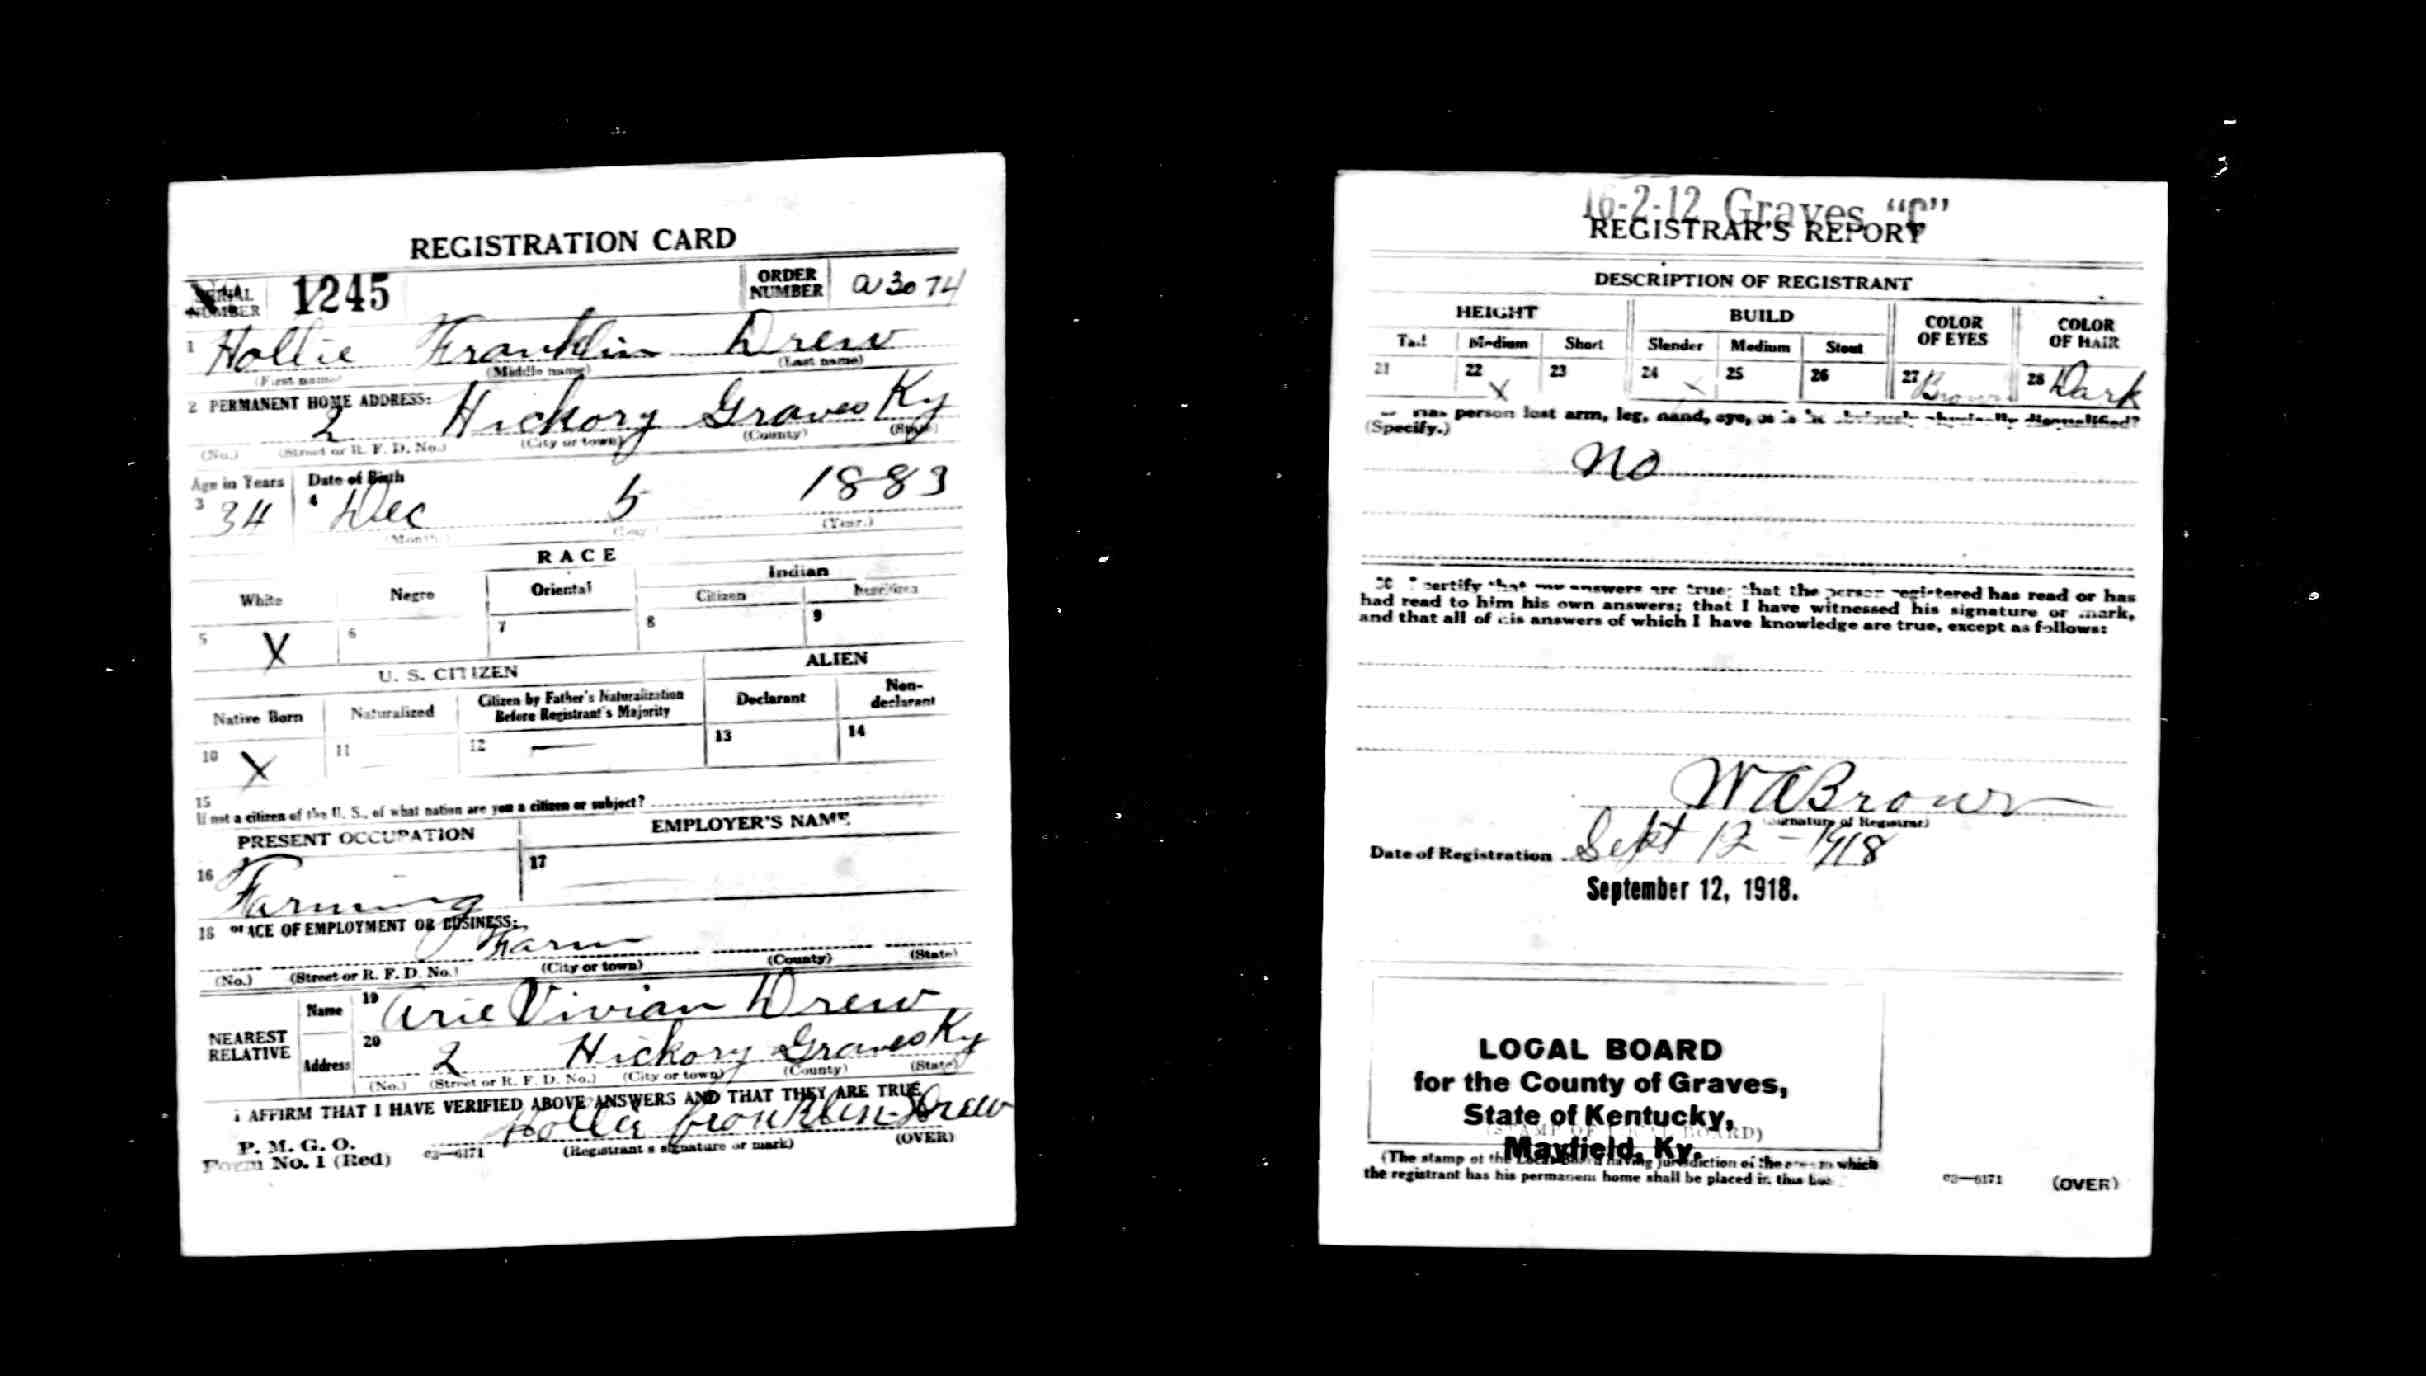 REGISTRATION CARD
SERIAL NUMBER 1245 ORDER NUMBER a3074
1 Hollie Franklin Drew
(First name) (Middle name) (Last name)
2 PERMANENT HOME ADDRESS:
2 Hickory Graves Ky
(No.) (Street or R. F. D. No.) (City or town) (County) (State)
Age in Years Date of Birth
3 34 4 Dec 5 1883
(Month.) (Day.) (Year.)
RACE
White Negro Oriental Indian
Citizen Noncitizen
5 X 6 7 8 9
U. S. CITIZEN ALIEN
Native Born Naturalized Citizen by Father's Naturalization Before Registrant's Majority Declarant Non-declarant
10 X 11 12 13 14
15
If not a citizen of the U. S., of what nation are you a citizen or subject?
PRESENT OCCUPATION EMPLOYER'S NAME
16 Farming 17
18 PLACE OF EMPLOYMENT OR BUSINESS:
Farm
(No.) (Street or R. F. D. No.) (City or town) (County) (State)
NEAREST RELATIVE Name 19 Arie Vivian Drew
Address 20 2 Hickory Graves Ky
(No.) (Street or R. F. D. No.) (City or town) (County) (State)
I AFFIRM THAT I HAVE VERIFIED ABOVE ANSWERS AND THAT THEY ARE TRUE
Hollie Franklin Drew
P. M. G. O.
Form No. 1 (Red) 03—6171 (Registrant's signature or mark) (OVER)
16-2-12 Graves "C"
REGISTRAR'S REPORT
DESCRIPTION OF REGISTRANT
HEIGHT BUILD COLOR OF EYES COLOR OF HAIR
Tall Medium Short Slender Medium Stout
21 22 X 23 24 X 25 26 27 Brown 28 Dark
Has person lost arm, leg, hand, eye, or is he obviously physically disqualified?
(Specify.)
No
30 I certify that my answers are true; that the person registered has read or has
had read to him his own answers; that I have witnessed his signature or mark,
and that all of his answers of which I have knowledge are true, except as follows:
W A Brown
(Signature of Registrar)
Date of Registration Sept 12 - 1918
September 12, 1918.
LOCAL BOARD
for the County of Graves,
State of Kentucky,
(STAMP OF LOCAL BOARD)
Mayfield, Ky.
(The stamp of the Local Board having jurisdiction of the area in which
the registrant has his permanent home shall be placed in this box.
03—6171 (OVER)